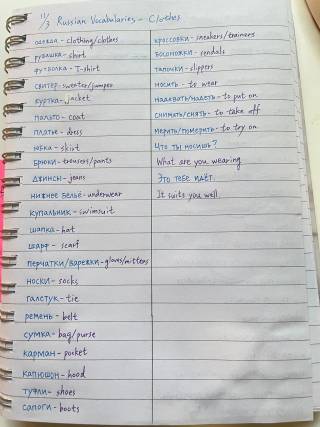 11/3 Russian Vocabularies - Clothes
одежда - clothing/clothes
рубашка - shirt
футболка - T-shirt
свитер - sweater/jumper
куртка - jacket
пальто - coat
платье - dress
юбка - skirt
брюки - trousers/pants
джинсы - jeans
нижнее бельё - underwear
купальник - swimsuit
шапка - hat
шарф - scarf
перчатки/варежки - gloves/mittens
носки - socks
галстук - tie
ремень - belt
сумка - bag/purse
карман - pocket
капюшон - hood
туфли - shoes
сапоги - boots
кроссовки - sneakers/trainers
босоножки - sandals
тапочки - slippers
носить - to wear
надевать/надеть - to put on
снимать/снять - to take off
мерить/померить - to try on
Что ты носишь?
What are you wearing
Это тебе идёт.
It suits you well.